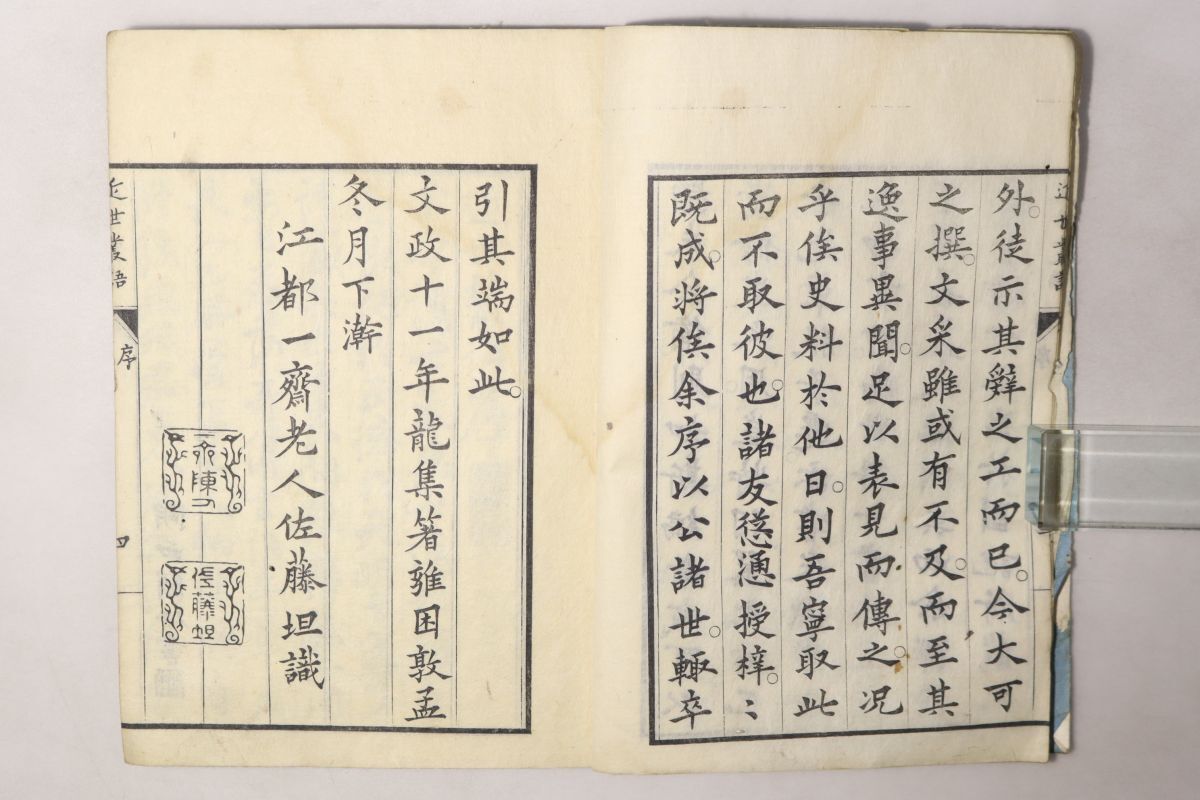 外。徒示其辭之工而已。今大可
之撰。文采雖或有不及。而至其
逸事異聞。足以表見而傳之。況
乎俟史料於他日。則吾寧取此
而不取彼也。諸友慫慂授梓。〻
既成。將俟余序以公諸世。輙卒
引其端如此。
文政十一年龍集著雍困敦孟
冬月下澣
江都一齋老人佐藤坦識
近世叢語
序
四
佐藤坦